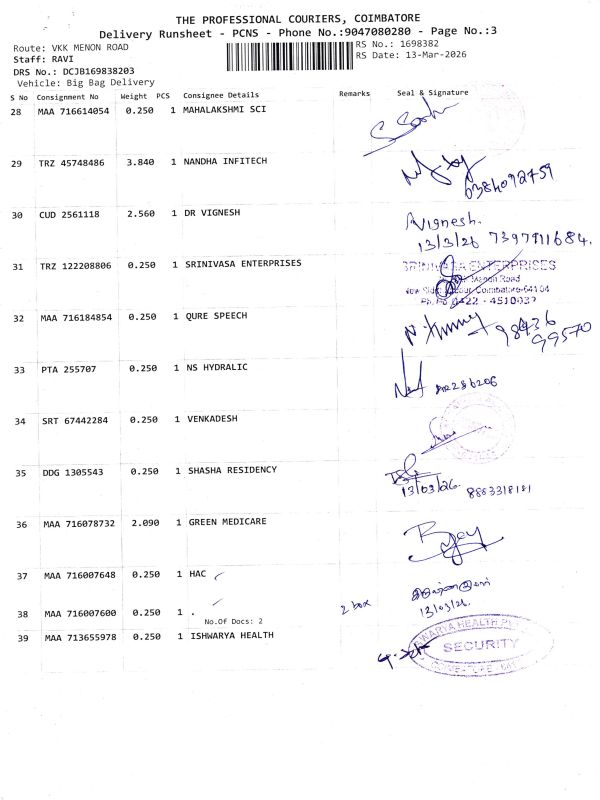 THE PROFESSIONAL COURIERS, COIMBATORE
Delivery Runsheet - PCNS - Phone No.:9047080280 - Page No.:3
Route: VKK MENON ROAD
RS No.: 1698382
Staff: RAVI
RS Date: 13-Mar-2026
DRS No.: DCJB169838203
Vehicle: Big Bag Delivery
S No Consignment No Weight PCS Consignee Details Remarks Seal & Signature
28 MAA 716614054 0.250 1 MAHALAKSHMI SCI
29 TRZ 45748486 3.840 1 NANDHA INFITECH
6384092759
30 CUD 2561118 2.560 1 DR VIGNESH
Vignesh.
13/3/26 7397911684.
31 TRZ 122208806 0.250 1 SRINIVASA ENTERPRISES
SRINIVASA ENTERPRISES
Coimbatore-64104
0422 - 4510037
32 MAA 716184854 0.250 1 QURE SPEECH
98436
99570
33 PTA 255707 0.250 1 NS HYDRALIC
34 SRT 67442284 0.250 1 VENKADESH
35 DDG 1305543 0.250 1 SHASHA RESIDENCY
13/03/26. 8883318181
36 MAA 716078732 2.090 1 GREEN MEDICARE
37 MAA 716007648 0.250 1 HAC
38 MAA 716007600 0.250 1 .
2 box
13/03/26.
No.Of Docs: 2
39 MAA 713655978 0.250 1 ISHWARYA HEALTH
SECURITY